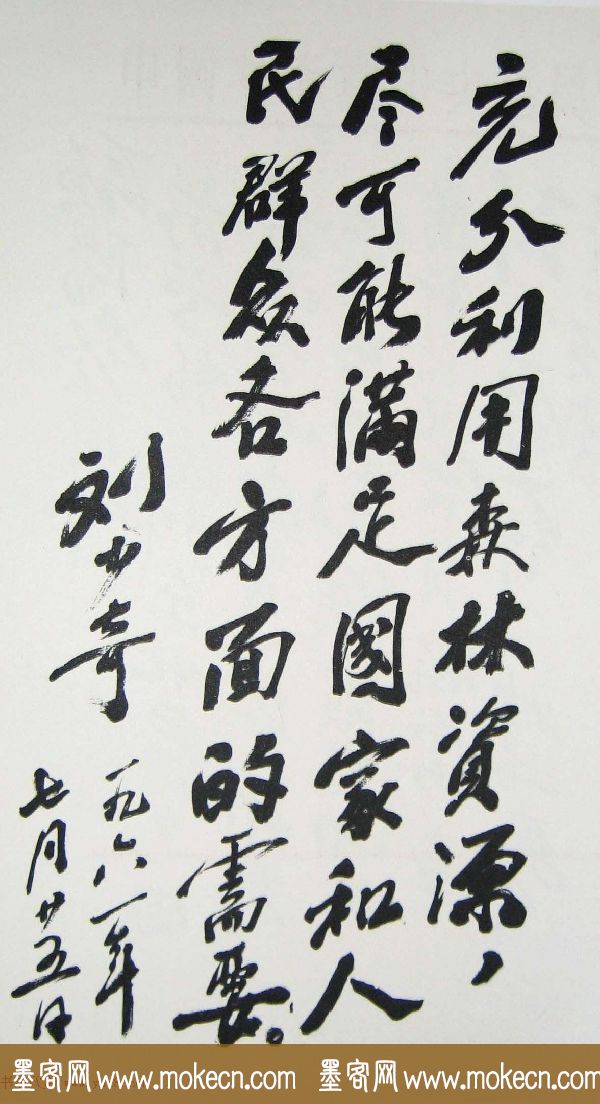 充分利用森林資源，
尽可能满足國家和人
民群众各方面的需要。
刘少奇
一九六一年
七月廿五日
墨客网 www.mokecn.com 墨客网 www.mokecn.com